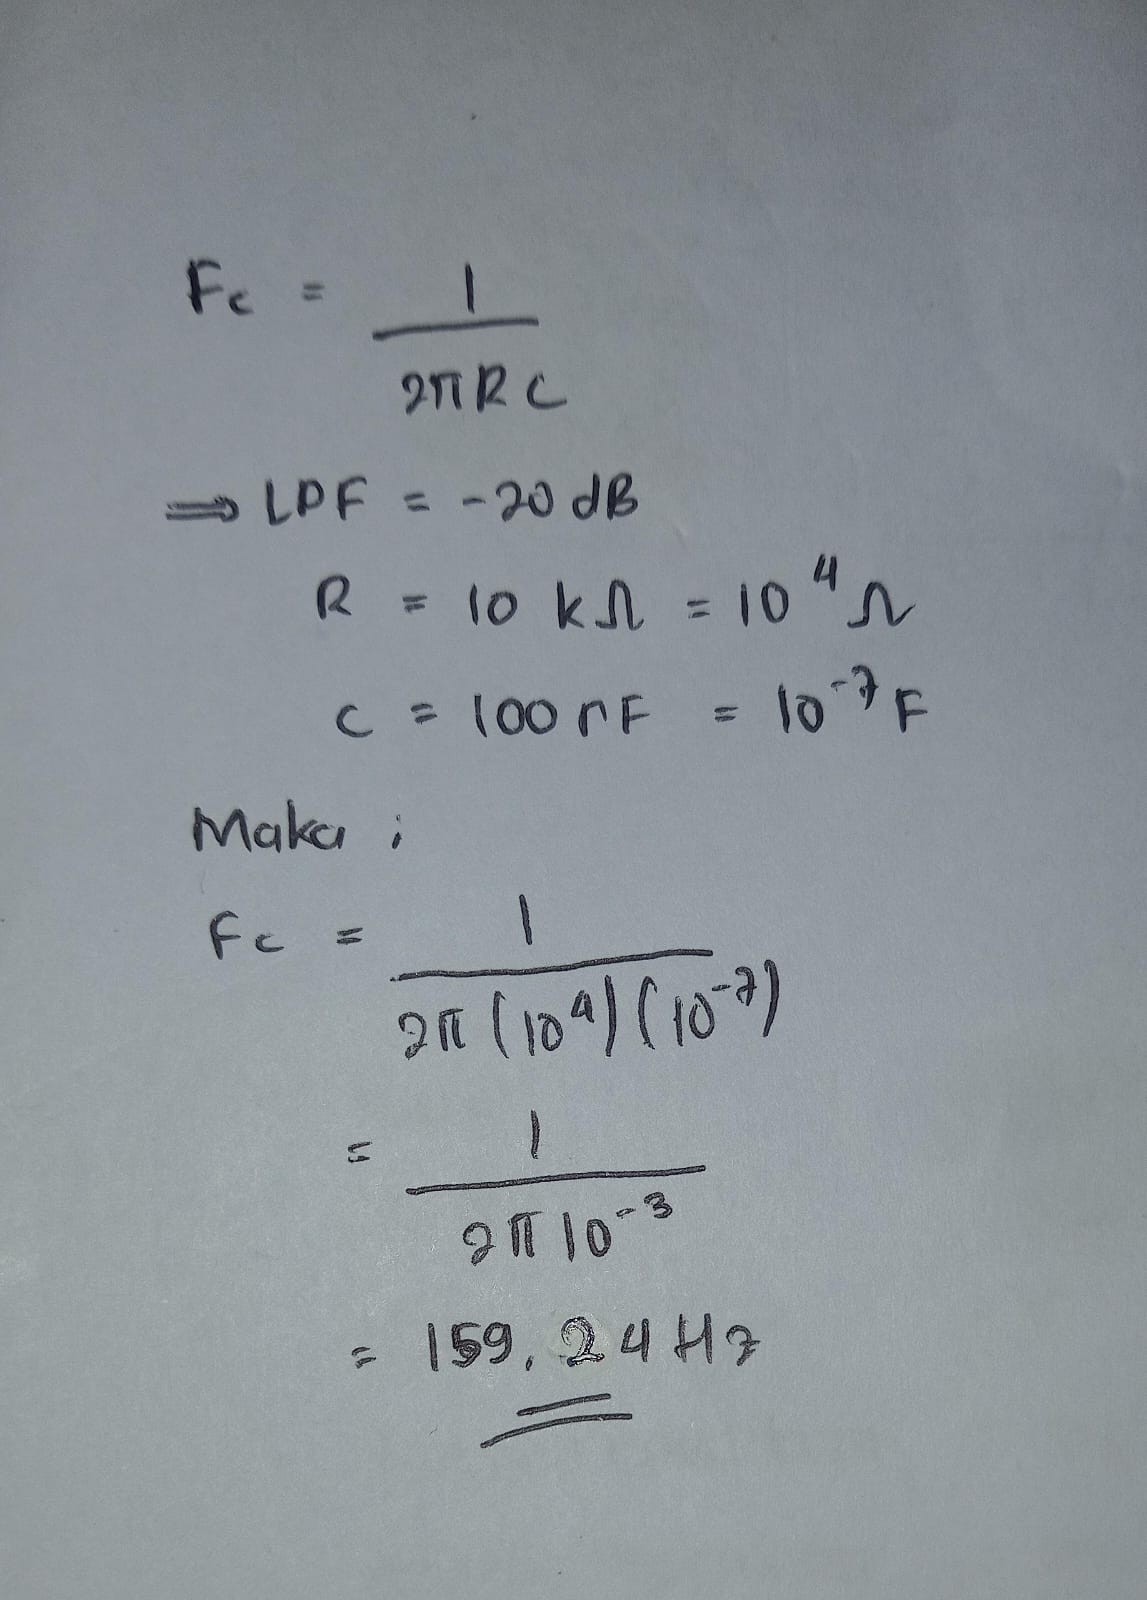 Fc = 1
2πRC
⇒ LPF = -20 dB
R = 10 kΩ = 10⁴ Ω
C = 100 nF = 10⁻⁷ F
Maka ;
Fc = 1
2π (10⁴) (10⁻⁷)
= 1
2π 10⁻³
= 159,24 Hz